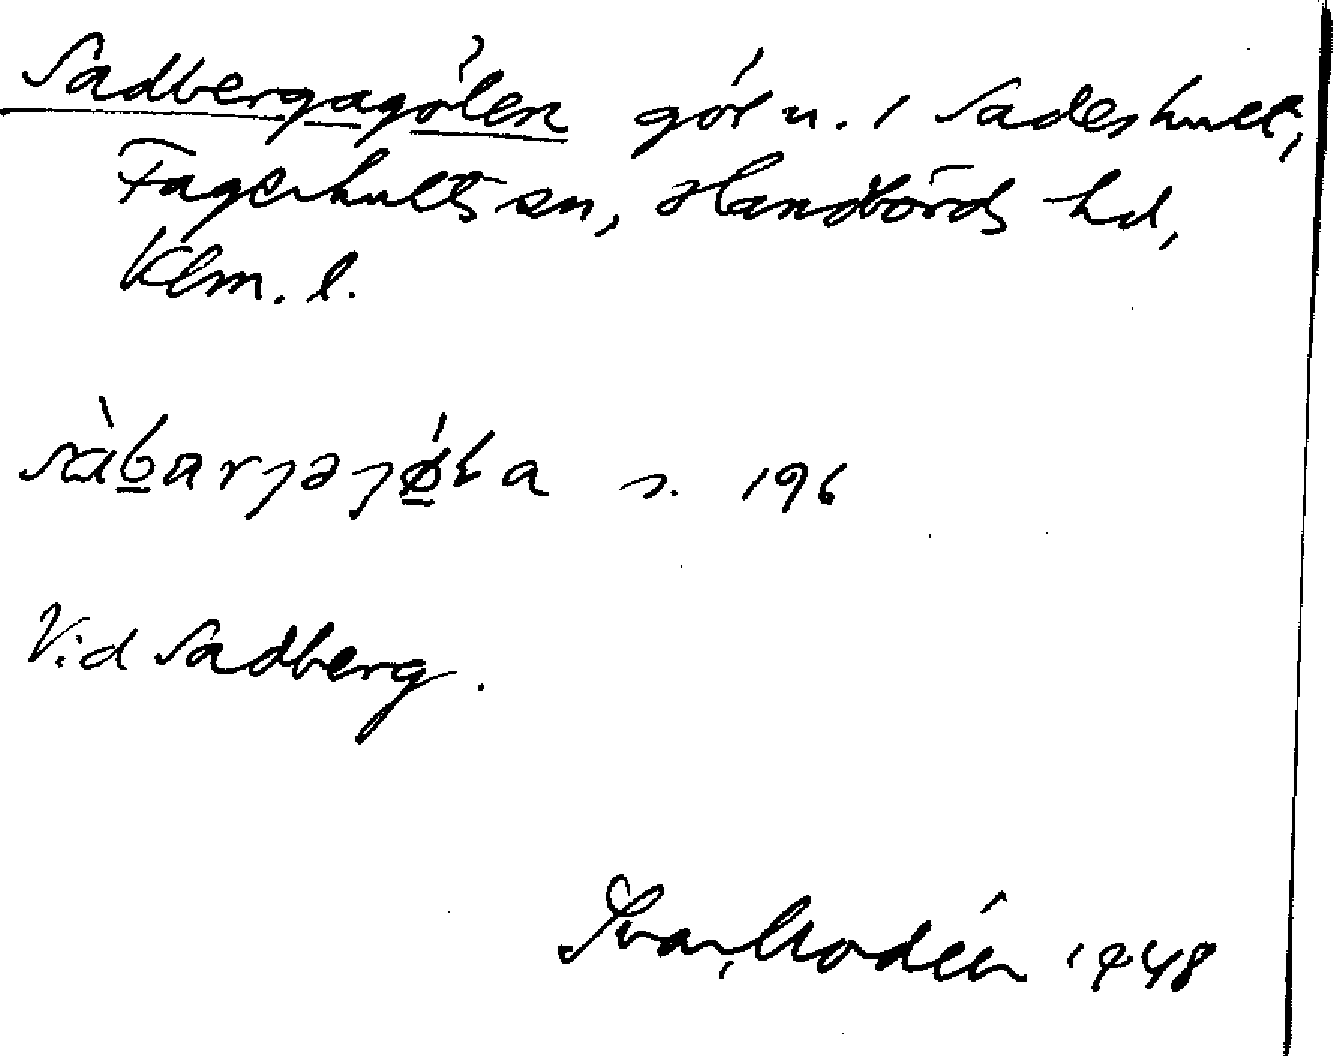 Sadbergagölen göl n. i Sadeshult,
Fagerhults sn, Handbörds hd,
Klm. l.
s. 196
Vid Sadberg.
Ivar Modéer 1948